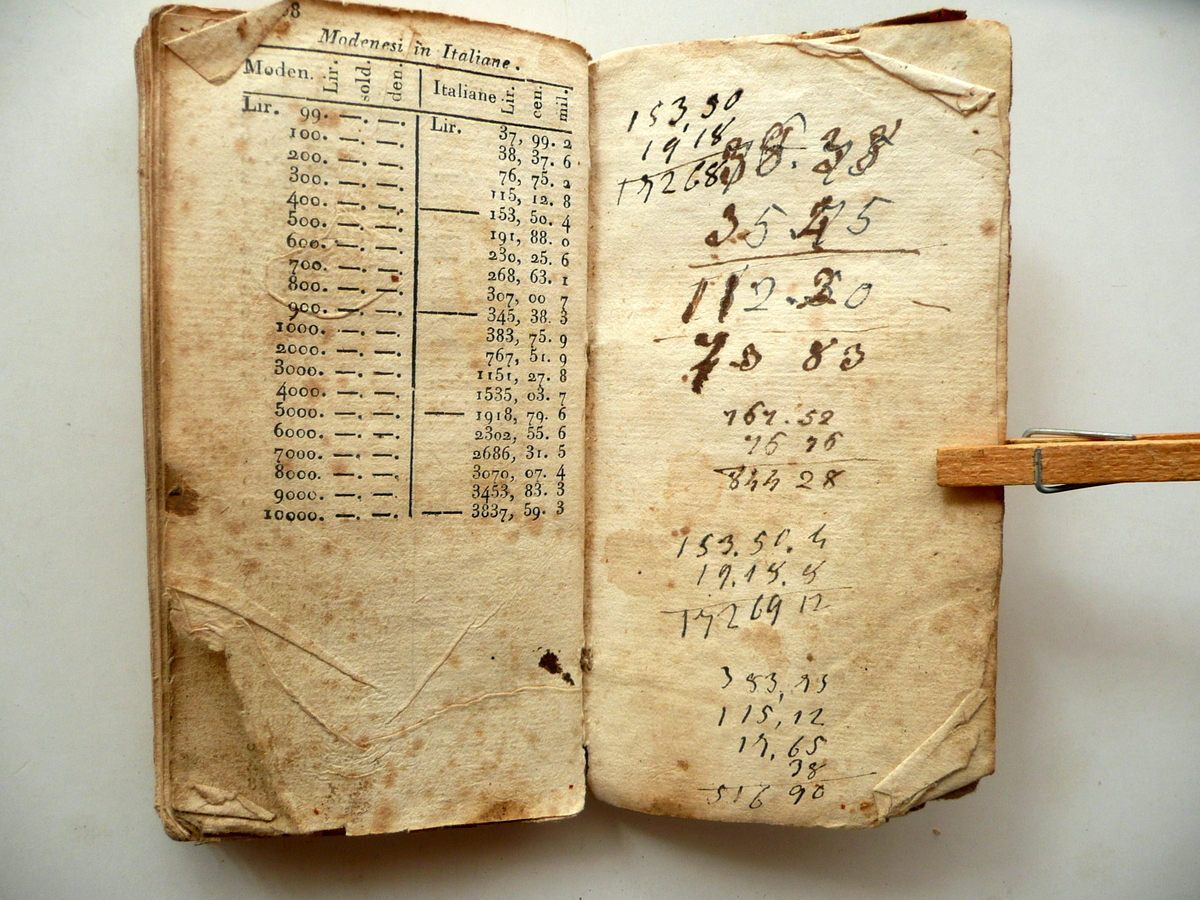 8
Modenesi in Italiane.
Moden. Lir. sold. den. Italiane Lir. cen. mil.
Lir. 99. —. —. Lir. 37, 99. 2
100. —. —. 38, 37. 6
200. —. —. 76, 75. 2
300. —. —. 115, 12. 8
400. —. —. 153, 50. 4
500. —. —. 191, 88. 0
600. —. —. 230, 25. 6
700. —. —. 268, 63. 1
800. —. —. 307, 00 7
900. —. —. 345, 38. 3
1000. —. —. 383, 75. 9
2000. —. —. 767, 51. 9
3000. —. —. 1151, 27. 8
4000. —. —. 1535, 03. 7
5000. —. —. 1918, 79. 6
6000. —. —. 2302, 55. 6
7000. —. —. 2686, 31. 5
8000. —. —. 3070, 07. 4
9000. —. —. 3453, 83. 3
10000. —. —. 3837, 59. 3
153,50
19 18
17268
38.38
35.45
112.30
73 83
767.52
76 76
844 28
153.50.4
19.18.8
17269 12
383,75
115,12
17,65
38
516 90